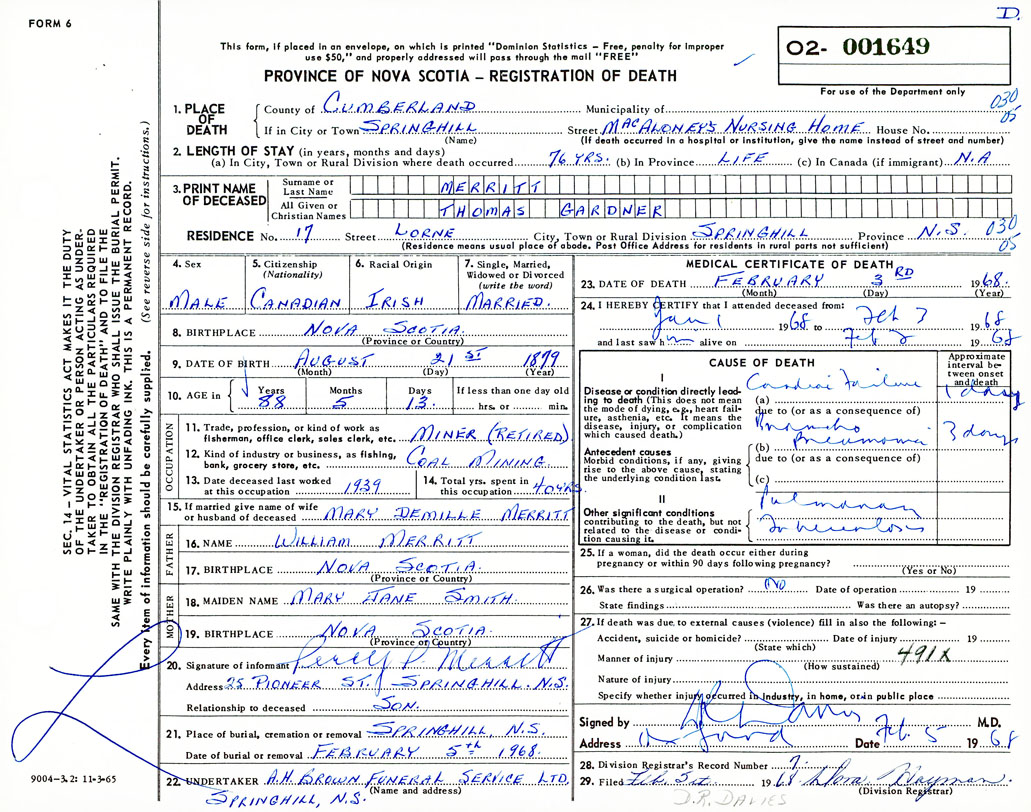 FORM 6
D.
This form, if placed in an envelope, on which is printed "Dominion Statistics – Free, penalty for improper
use $50," and properly addressed will pass through the mail "FREE"
PROVINCE OF NOVA SCOTIA – REGISTRATION OF DEATH
02- 001649
For use of the Department only
SEC. 14 – VITAL STATISTICS ACT MAKES IT THE DUTY
OF THE UNDERTAKER OR PERSON ACTING AS UNDER-
TAKER TO OBTAIN ALL THE PARTICULARS REQUIRED
IN THE "REGISTRATION OF DEATH" AND TO FILE THE
SAME WITH THE DIVISION REGISTRAR WHO SHALL ISSUE THE BURIAL PERMIT.
WRITE PLAINLY WITH UNFADING INK. THIS IS A PERMANENT RECORD.
Every item of information should be carefully supplied. (See reverse side for instructions.)
1. PLACE OF DEATH
County of CUMBERLAND Municipality of 030 05
If in City or Town SPRINGHILL Street MACALONEY'S NURSING HOME House No.
(Name) (If death occurred in a hospital or institution, give the name instead of street and number)
2. LENGTH OF STAY (in years, months and days)
(a) In City, Town or Rural Division where death occurred 76 YRS. (b) In Province LIFE (c) In Canada (if immigrant) N.A
3. PRINT NAME OF DECEASED
Surname or Last Name MERRITT
All Given or Christian Names THOMAS GARDNER
RESIDENCE No. 17 Street LORNE City, Town or Rural Division SPRINGHILL Province N.S. 030 05
(Residence means usual place of abode. Post Office Address for residents in rural parts not sufficient)
4. Sex
MALE
5. Citizenship (Nationality)
CANADIAN
6. Racial Origin
IRISH
7. Single, Married, Widowed or Divorced (write the word)
MARRIED.
8. BIRTHPLACE NOVA SCOTIA.
(Province or Country)
9. DATE OF BIRTH AUGUST 21 ST 1879
(Month) (Day) (Year)
10. AGE in Years 88 Months 5 Days 13. If less than one day old hrs. or min.
OCCUPATION
11. Trade, profession, or kind of work as fisherman, office clerk, sales clerk, etc. MINER (RETIRED)
12. Kind of industry or business, as fishing, bank, grocery store, etc. COAL MINING.
13. Date deceased last worked at this occupation 1939
14. Total yrs. spent in this occupation 40 YRS.
15. If married give name of wife or husband of deceased MARY DEMILLE MERRITT
FATHER
16. NAME WILLIAM MERRITT
17. BIRTHPLACE NOVA SCOTIA.
(Province or Country)
MOTHER
18. MAIDEN NAME MARY JANE SMITH.
19. BIRTHPLACE NOVA SCOTIA.
(Province or Country)
20. Signature of informant Percy P. Merritt
Address 25 PIONEER ST. SPRINGHILL. N.S.
Relationship to deceased SON.
21. Place of burial, cremation or removal SPRINGHILL, N.S.
Date of burial or removal FEBRUARY 5TH 1968.
22. UNDERTAKER A.H. BROWN FUNERAL SERVICE LTD.
(Name and address)
SPRINGHILL, N.S.
9004–3.2: 11-3-65
MEDICAL CERTIFICATE OF DEATH
23. DATE OF DEATH FEBRUARY 3 RD 1968.
(Month) (Day) (Year)
24. I HEREBY CERTIFY that I attended deceased from:
Jan 1 1968 to Feb 3 1968
and last saw him alive on Feb 2 1968
CAUSE OF DEATH
Approximate interval between onset and/death
I
Disease or condition directly leading to death (This does not mean the mode of dying, e.g., heart failure, asthenia, etc. It means the disease, injury, or complication which caused death.)
(a) Cardiac Failure 1 day
due to (or as a consequence of)
Antecedent causes
Morbid conditions, if any, giving rise to the above cause, stating the underlying condition last.
(b) Broncho Pneumonia 3 days
due to (or as a consequence of)
(c)
II
Other significant conditions contributing to the death, but not related to the disease or condition causing it.
Pulmonary
Tuberculosis
25. If a woman, did the death occur either during pregnancy or within 90 days following pregnancy?
(Yes or No)
26. Was there a surgical operation? No Date of operation 19
State findings Was there an autopsy?
27. If death was due to external causes (violence) fill in also the following:–
Accident, suicide or homicide? Date of injury 19
(State which)
Manner of injury 491X
(How sustained)
Nature of injury
Specify whether injury occurred in industry, in home, or in public place
Signed by Davies M.D.
Address Date Feb. 5 1968
28. Division Registrar's Record Number 7.
29. Filed Feb. 5th 1968 Hayman.
(Division Registrar)
D.R. DAVIES